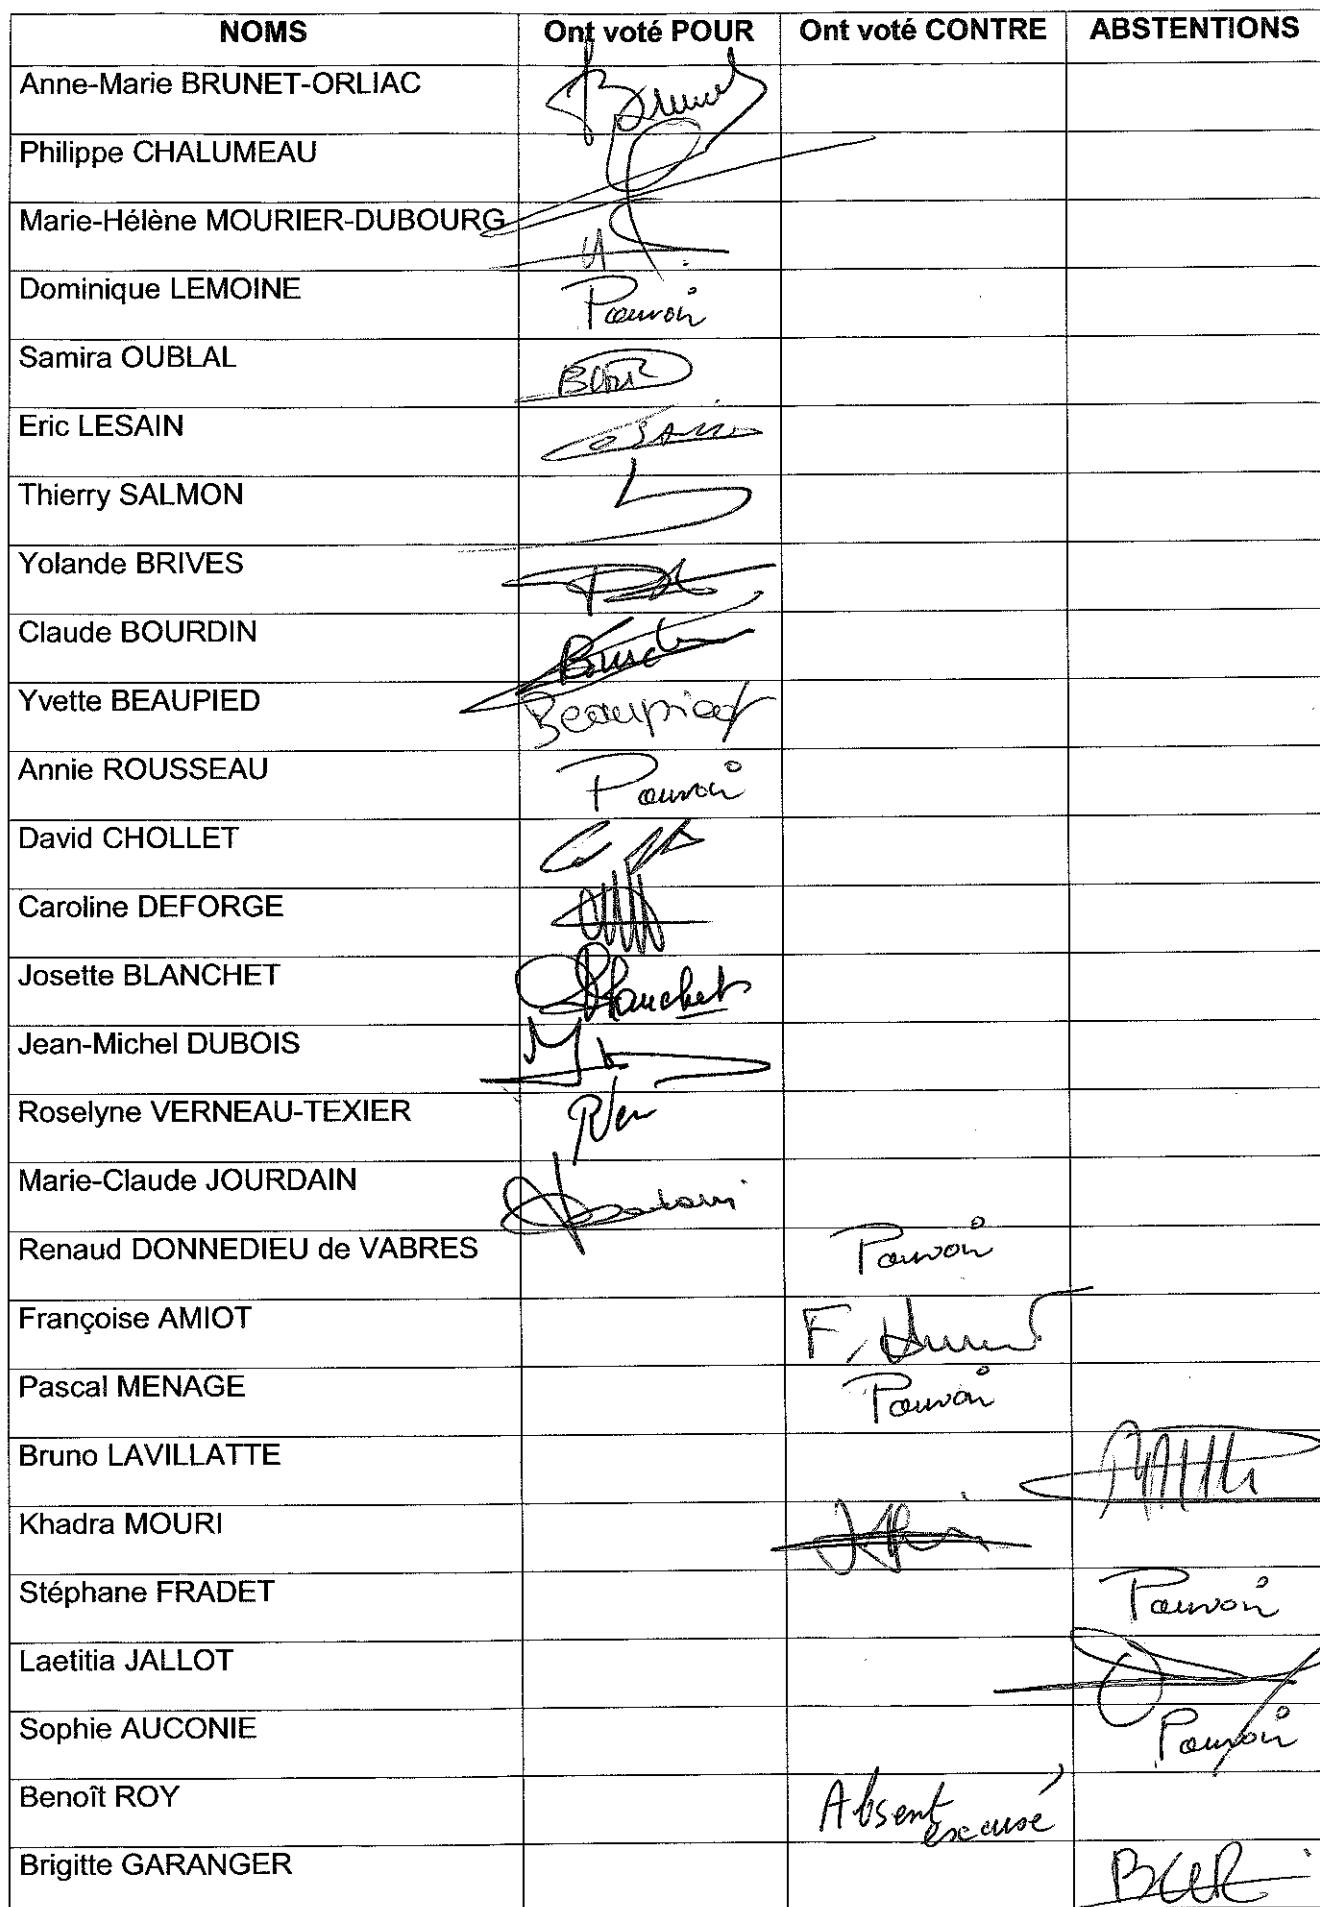 NOMS Ont voté POUR Ont voté CONTRE ABSTENTIONS
Anne-Marie BRUNET-ORLIAC Brunet
Philippe CHALUMEAU
Marie-Hélène MOURIER-DUBOURG
Dominique LEMOINE Pouvoir
Samira OUBLAL
Eric LESAIN
Thierry SALMON
Yolande BRIVES
Claude BOURDIN
Yvette BEAUPIED Beaupied
Annie ROUSSEAU Pouvoir
David CHOLLET
Caroline DEFORGE
Josette BLANCHET Blanchet
Jean-Michel DUBOIS
Roselyne VERNEAU-TEXIER
Marie-Claude JOURDAIN
Renaud DONNEDIEU de VABRES Pouvoir
Françoise AMIOT
Pascal MENAGE Pouvoir
Bruno LAVILLATTE
Khadra MOURI
Stéphane FRADET Pouvoir
Laetitia JALLOT
Sophie AUCONIE Pouvoir
Benoît ROY Absent excusé
Brigitte GARANGER